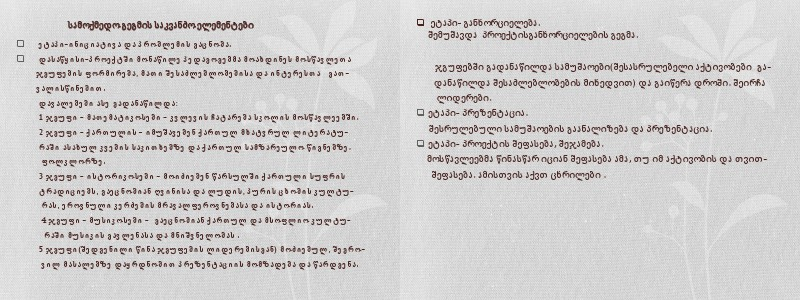 სამოქმედო გეგმის საკვანძო ელემენტები
ეტაპი-ინიციატივა და პრობლემის გაცნობა.
დასაწყისი-პროექტში მონაწილე პედაგოგებმა მოახდინეს მოსწავლეთა
ჯგუფების ფორმირება, მათი შესაძლებლობებისა და ინტერესთა გათ-
ვალისწინებით.
დავალებები ასე გადანაწილდა:
1 ჯგუფი – მათემატიკოსები – კვლევის ჩატარება სკოლის მოსწავლეებში.
2 ჯგუფი – ქართულის – იმუშავებენ ქართულ მხატვრულ ლიტერატუ-
რაში ასახულ კვების საკითხებზე და ქართულ სამზარეულო წიგნებზე.
ფოლკლორზე.
3 ჯგუფი – ისტორიკოსები – მოიძიებენ წარსულში ქართული სუფრის
ტრადიციებს, გაეცნობიან ღვინისა და ლუდის, პურის ცხობის კულტუ-
რას, ეროვნული კერძების მრავალფეროვნებასა და ისტორიას.
4 ჯგუფი – მუსიკოსები – გაეცნობიან ქართულ და მსოფლიო კულტუ-
რაში მუსიკის გავლენასა და მნიშვნელობას.
5 ჯგუფი(შედგენილი წინა ჯგუფების ლიდერებისგან) მოძიებულ, შეგრო-
ვილ მასალებზე დაყრდნობით პრეზენტაციის მომზადება და წარდგენა.
ეტაპი- განხორციელება.
შემუშავდა პროექტისგანხორციელების გეგმა.
ჯგუფებში გადანაწილდა სამუშაოები(შესასრულებელი აქტივობები გა-
დანაწილდა შესაძლებლობების მიხედვით) და გაიწერა დროში. შეირჩა
ლიდერები.
ეტაპი- პრეზენტაცია.
შესრულებული სამუშაოების გაანალიზება და პრეზენტაცია.
ეტაპი- პროექტის შეფასება, შეჯამება.
მოსწავლეებმა წინასწარ იციან შეფასება ამა, თუ იმ აქტივობის და თვით-
შეფასება. ამისთვის აქვთ ცხრილები .